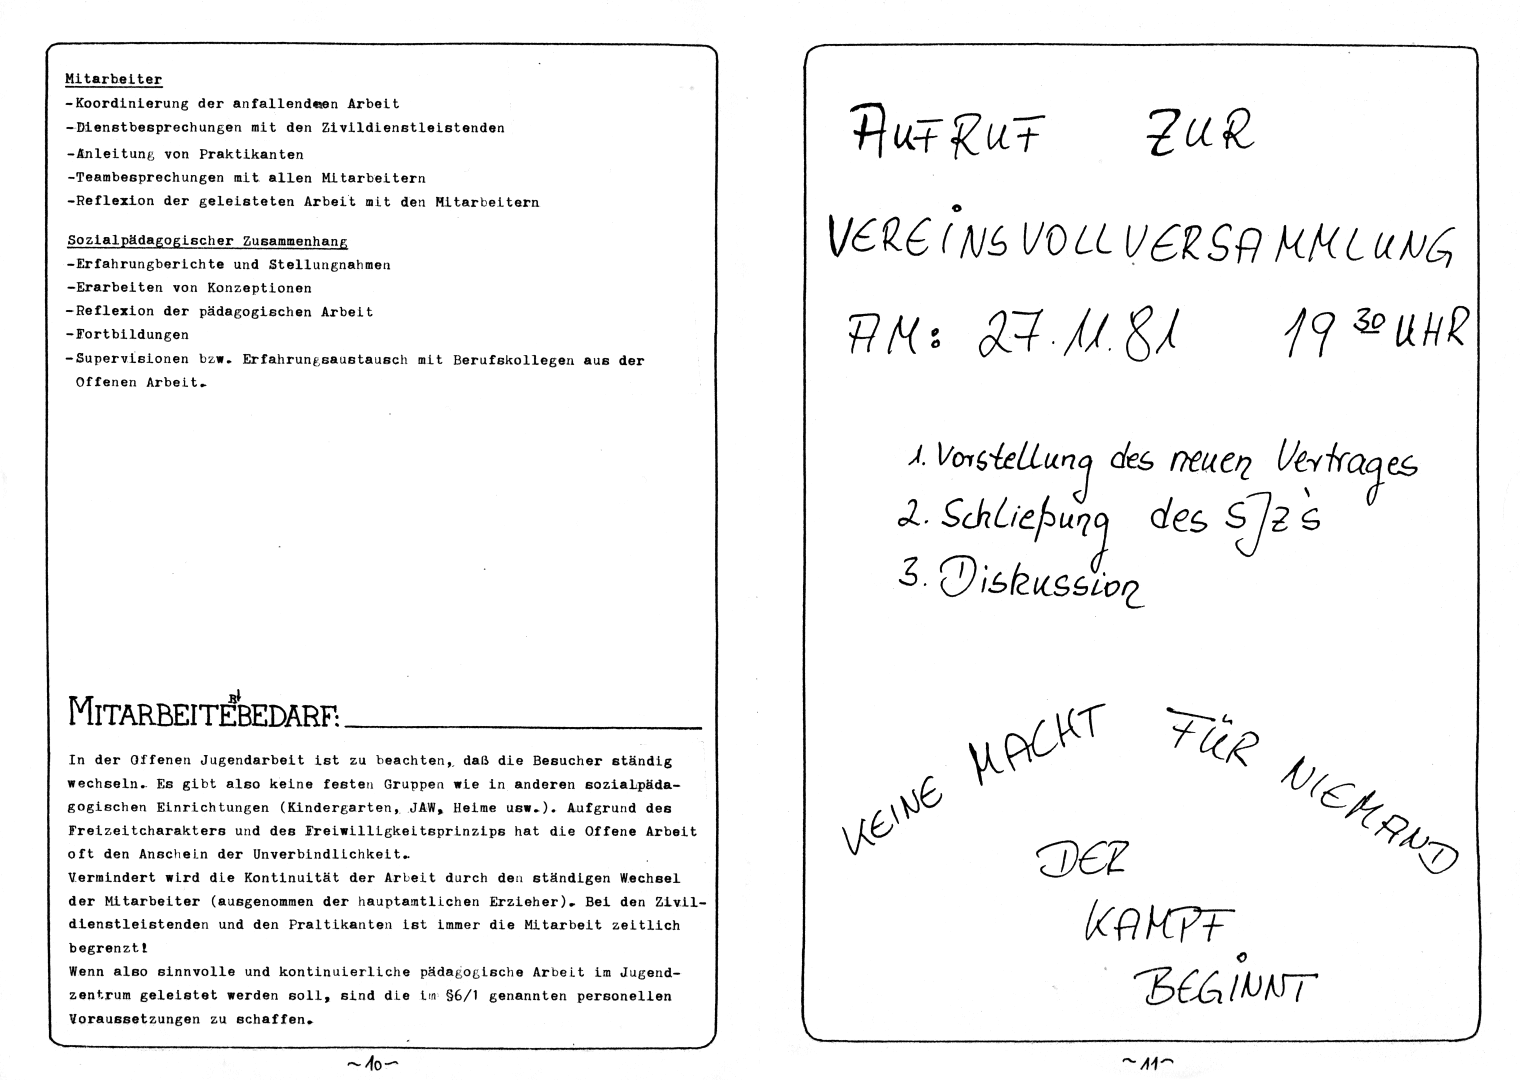 Mitarbeiter
-Koordinierung der anfallendeen Arbeit
-Dienstbesprechungen mit den Zivildienstleistenden
-Anleitung von Praktikanten
-Teambesprechungen mit allen Mitarbeitern
-Reflexion der geleisteten Arbeit mit den Mitarbeitern
Sozialpädagogischer Zusammenhang
-Erfahrungberichte und Stellungnahmen
-Erarbeiten von Konzeptionen
-Reflexion der pädagogischen Arbeit
-Fortbildungen
-Supervisionen bzw. Erfahrungsaustausch mit Berufskollegen aus der
Offenen Arbeit.
R
MITARBEITEBEDARF:
In der Offenen Jugendarbeit ist zu beachten, daß die Besucher ständig
wechseln. Es gibt also keine festen Gruppen wie in anderen sozialpäda-
gogischen Einrichtungen (Kindergarten, JAW, Heime usw.). Aufgrund des
Freizeitcharakters und des Freiwilligkeitsprinzips hat die Offene Arbeit
oft den Anschein der Unverbindlichkeit.
Vermindert wird die Kontinuität der Arbeit durch den ständigen Wechsel
der Mitarbeiter (ausgenommen der hauptamtlichen Erzieher). Bei den Zivil-
dienstleistenden und den Praltikanten ist immer die Mitarbeit zeitlich
begrenzt!
Wenn also sinnvolle und kontinuierliche pädagogische Arbeit im Jugend-
zentrum geleistet werden soll, sind die im §6/1 genannten personellen
Voraussetzungen zu schaffen.
~10~
AUFRUF ZUR
VEREINSVOLLVERSAMMLUNG
AM: 27.11.81 19 30 UHR
1. Vorstellung des neuen Vertrages
2. Schließung des SJZ`s
3. Diskussion
KEINE MACHT FÜR NIEMAND
DER
KAMPF
BEGINNT
~11~